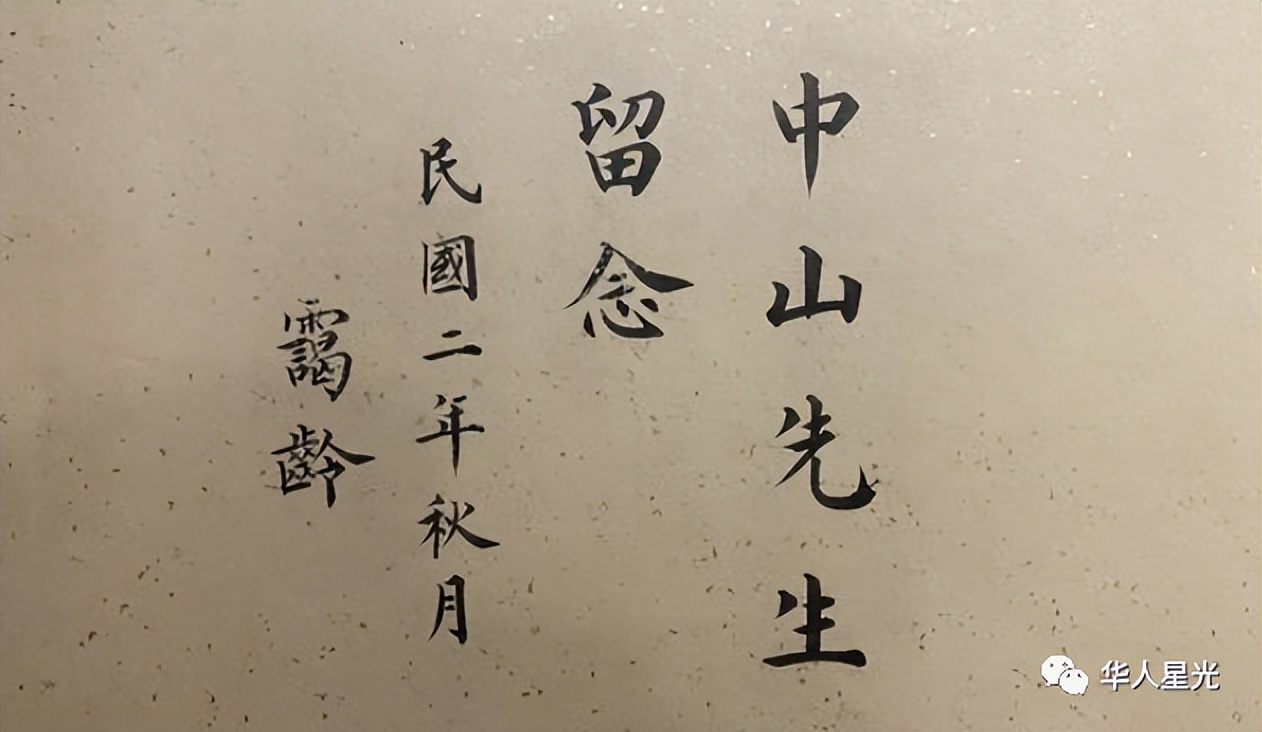 中山先生
留念
民國二年秋月
靄齡
华人星光